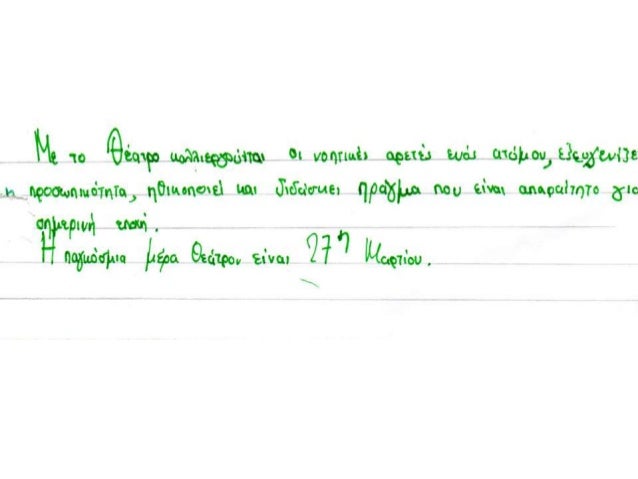 Με το Θέατρο καλλιεργούνται οι νοητικές αρετές ενός ατόμου, εξευγενίζε
η προσωπικότητα, ηθικοποιεί και διδάσκει πράγμα που είναι απαραίτητο για
σημερινή εποχή.
Η παγκόσμια μέρα Θεάτρου είναι 27η Μαρτίου.